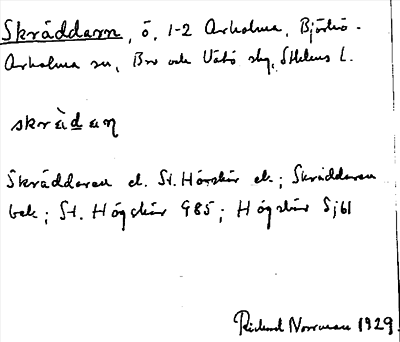 Skräddarn, ö, 1-2 Arholma, Björkö-
Arholma sn, Bro och Vätö skg, Sthlms l.
skrä̀dan
Skräddaren el. St. Högskär ek.; Skräddaren
bek; St. Högskär G85; Högskär Sjkl
Rickard Norrman 1929